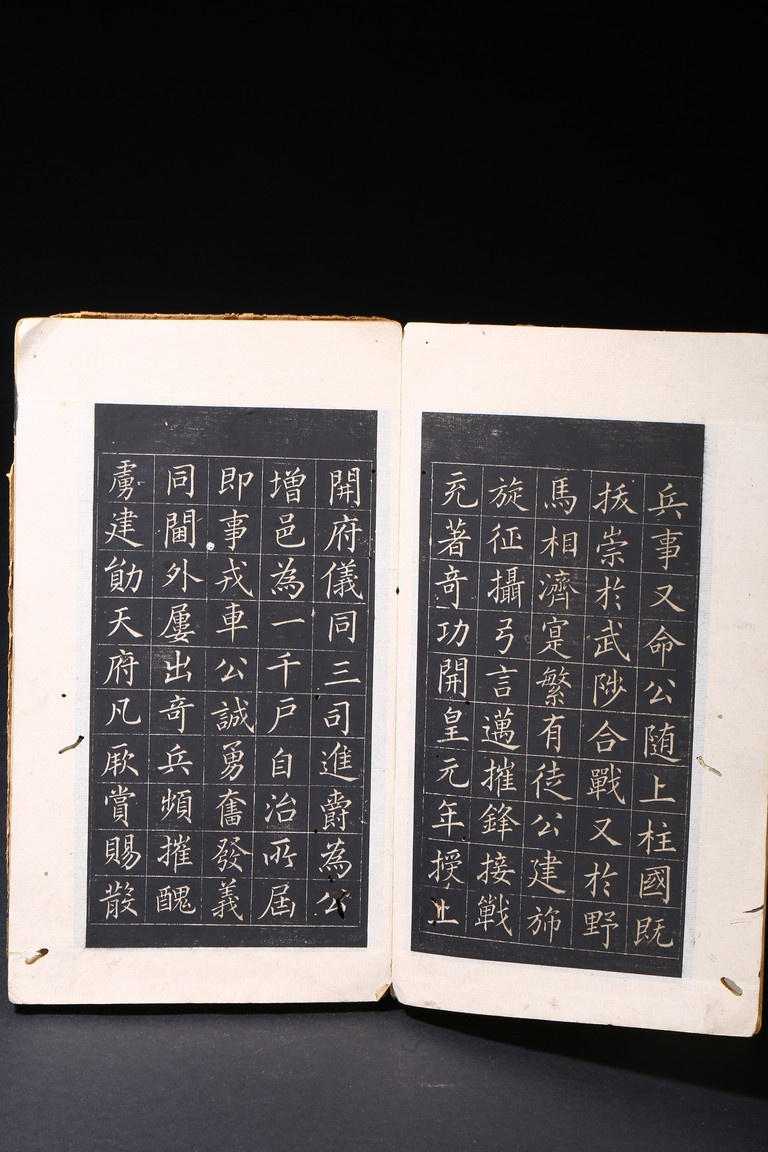 兵事又命公随上柱國既
拔崇於武陟合戰又於野
馬相濟寔繁有徒公建斾
旋征攝弓言邁摧鋒接戰
克著奇功開皇元年授上
開府儀同三司進爵為公
增邑為一千戶自治所屆
即事戎車公誠勇奮發義
同閫外屢出奇兵頻摧醜
虜建勛天府凡厥賞賜散